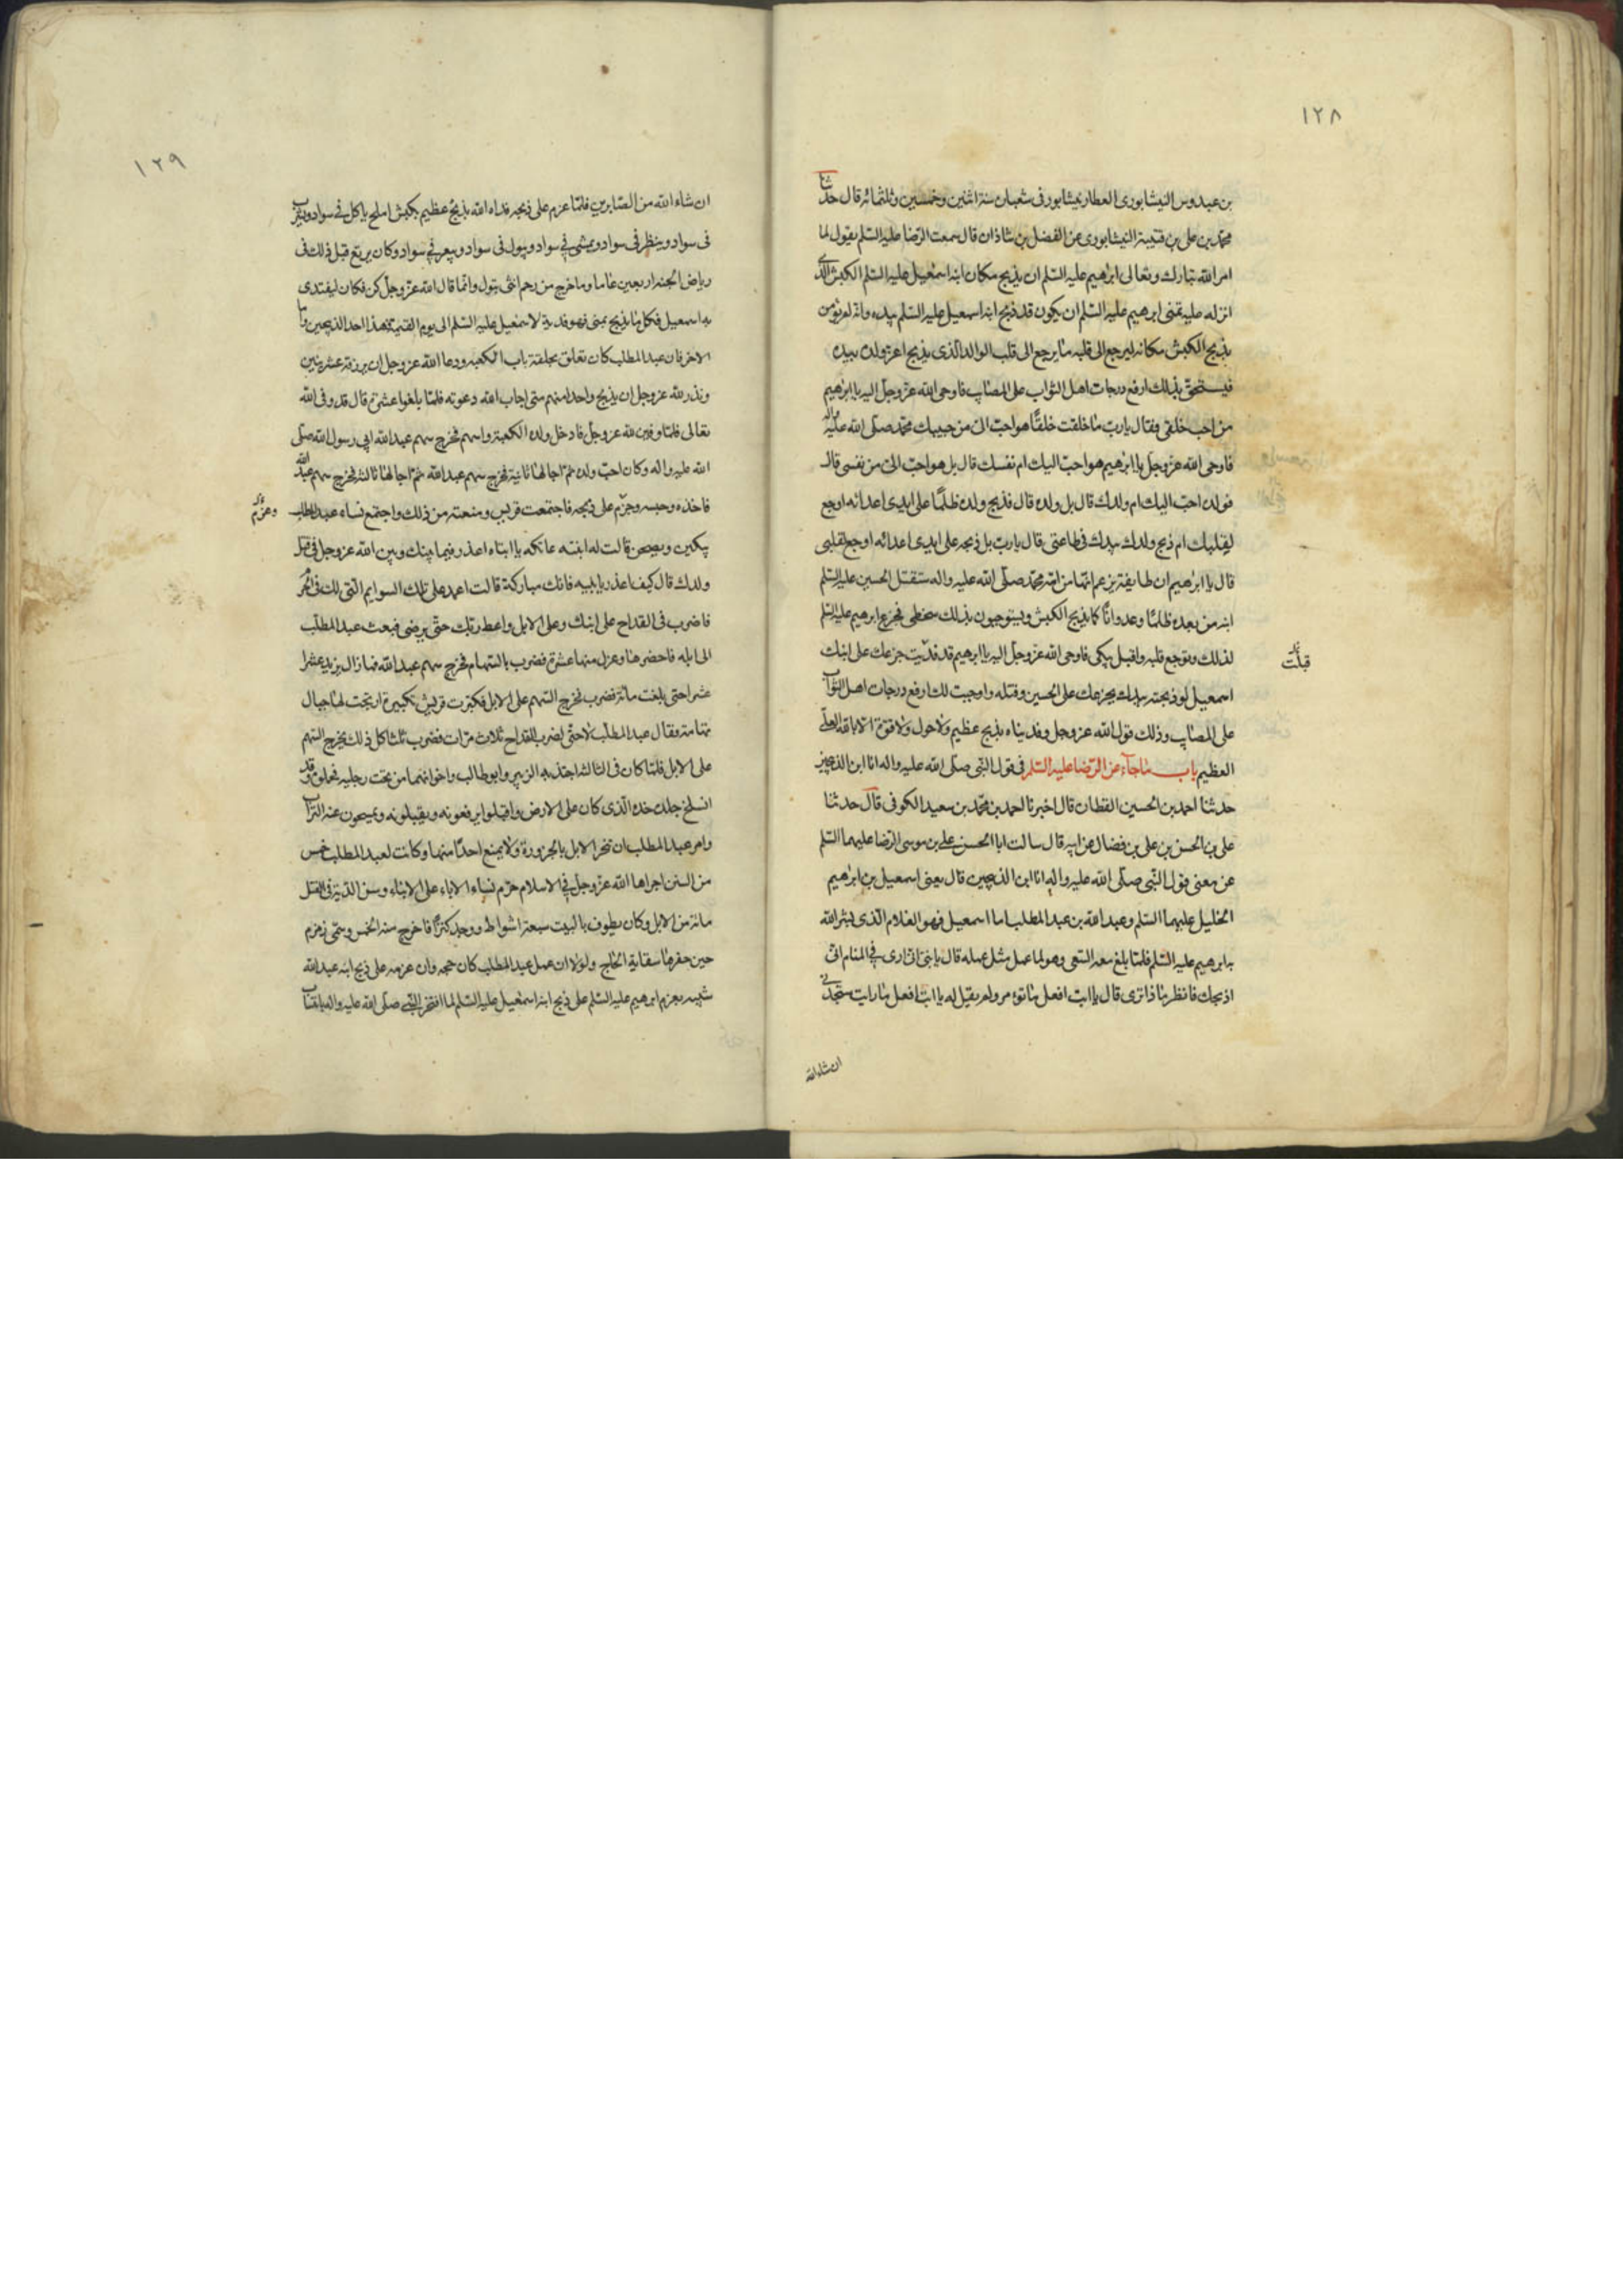 ١٢٨
بن عبدوس النيشابورى العطار بنيشابور فى شعبان سنة اثنين وخمسين وثلثمائة قال حدثنا
محمد بن على بن قتيبة النيشابورى عن الفضل بن شاذان قال سمعت الرضا عليه السلم يقول لما
امر الله تبارك وتعالى ابرهيم عليه السلم ان يذبح مكان ابنه اسمعيل عليه السلم الكبش الذى
انزله عليه تمنى ابرهيم عليه السلم ان يكون قد ذبح ابنه اسمعيل عليه السلم بيده وانه لم يؤمر
بذبح الكبش مكانه ليرجع الى قلبه ما يرجع الى قلب الوالد الذى يذبح اعز ولده بيده
فيستحق بذلك ارفع درجات اهل الثواب على المصايب فاوحى الله عز وجل اليه يا ابرهيم
من احب خلقى فقال يا رب ما خلقت خلقا هو احب الى من حبيبك محمد صلى الله عليه واله
فاوحى الله عز وجل يا ابرهيم هو احب اليك ام نفسك قال بل هو احب الى من نفسى قال
فولده احب اليك ام ولدك قال بل ولده قال فذبح ولده ظلما على ايدى اعدائه اوجع
لقلبك ام ذبح ولدك بيدك فى طاعتى قال يا رب بل ذبحه على ايدى اعدائه اوجع لقلبى
قال يا ابرهيم ان طايفة يزعم انها من امة محمد صلى الله عليه واله ستقتل الحسين عليه السلم
ابنه من بعده ظلما وعدوانا كما يذبح الكبش ويستوجبون بذلك سخطى فجزع ابرهيم عليه السلم
لذلك وتوجع قلبه واقبل يبكى فاوحى الله عز وجل اليه يا ابرهيم قد فديت جزعك على ابنك
قبلت
اسمعيل لو ذبحته بيدك بجزعك على الحسين وقتله واوجبت لك ارفع درجات اهل الثواب
على المصايب وذلك قول الله عز وجل وفديناه بذبح عظيم ولا حول ولا قوة الا بالله العلى
العظيم باب ما جآء عن الرضا عليه السلم فى قول النبى صلى الله عليه واله انا ابن الذبيحين
حدثنا احمد بن الحسين القطان قال اخبرنا احمد بن محمد بن سعيد الكوفى قال حدثنا
على بن الحسن بن على بن فضال عن ابيه قال سالت ابا الحسن على بن موسى الرضا عليهما السلم
عن معنى قول النبى صلى الله عليه واله انا ابن الذبيحين قال يعنى اسمعيل بن ابرهيم
الخليل عليهما السلم وعبد الله بن عبد المطلب اما اسمعيل فهو الغلام الذى بشر الله
به ابرهيم عليه السلم فلما بلغ معه السعى وهو لما عمل مثل عمله قال يا بنى انى ارى فى المنام انى
اذبحك فانظر ما ذا ترى قال يا ابت افعل ما تؤمر ولم يقل له يا ابت افعل ما رايت ستجدنى
ان شاء الله
١٢٩
ان شاء الله من الصابرين فلما عزم على ذبحه فداه الله بذبح عظيم بكبش املح ياكل فى سواد ويشرب
فى سواد وينظر فى سواد ويمشى فى سواد ويبول فى سواد ويبعر فى سواد وكان يرتع قبل ذلك فى
رياض الجنة اربعين عاما وما خرج من رحم انثى وانما قال الله عز وجل كن فكان ليفتدى
به اسمعيل فكل ما يذبح بمنى فهو فدية لاسمعيل عليه السلم الى يوم القيمة فهذا احد الذبيحين واما
الاخر فان عبد المطلب كان تعلق بحلقة باب الكعبه ودعا الله عز وجل ان يرزقه عشر بنين
ونذر لله عز وجل ان يذبح واحدا منهم متى اجاب الله دعوته فلما بلغوا عشرة قال قد وفى الله
تعالى فلما لله عز وجل فادخل ولده الكعبة واسهم فخرج سهم عبد الله ابى رسول الله صلى
الله عليه واله وكان احب ولده ثم اجالها ثانية فخرج سهم عبد الله ثم اجالها ثالثة فخرج سهم عبد الله
فاخذه وحبسه وجزم على ذبحه فاجتمعت قريش ومنعته من ذلك واجتمع نساء عبد المطلب
وعزم
يبكين ويصحن قالت له ابنته عاتكه يا ابتاه اعذر فيما بينك وبين الله عز وجل فى قتل
ولدك قال كيف اعذر يا بنيه فانك مباركة قالت اعمد على تلك السوايم التى لك فى الحرم
فاضرب فى القداح على ابنك وعلى الابل واعط ربك حتى يرضى فبعث عبد المطلب
الى ابله فاحضرها وعزل منها عشرة فضرب بالسهام فخرج سهم عبد الله فما زال يزيد عشرا
عشرا حتى بلغت مائة فضرب فخرج السهم على الابل فكبرت قريش تكبيرة ارتجت لها جبال
تهامة فقال عبد المطلب لا حتى اضرب القداح ثلاث مرات فضرب ثلثا كل ذلك يخرج السهم
على الابل فلما كان فى الثالثة اجتذبه الزبير وابو طالب واخوانهما من تحت رجليه فحملوه وقد
انسلخ جلد خده الذى كان على الارض واقبلوا يرفعونه ويقبلونه ويمسحون عنه التراب
وامر عبد المطلب ان تنحر الابل بالجزورة ولا يمنع احدا منها وكانت لعبد المطلب خمس
من السنن اجراها الله عز وجل فى الاسلام حرم نساء الاباء على الابناء وسن الدية فى القتل
مائة من الابل وكان يطوف بالبيت سبعة اشواط ووجد كنزا فاخرج منه الخمس وسمى زمزم
حين حفرها سقاية الحاج ولولا ان عمل عبد المطلب كان حجه وان عزمه على ذبح ابنه عبد الله
شبيه بعزم ابرهيم عليه السلم على ذبح ابنه اسمعيل عليه السلم لما افتخر النبى صلى الله عليه واله